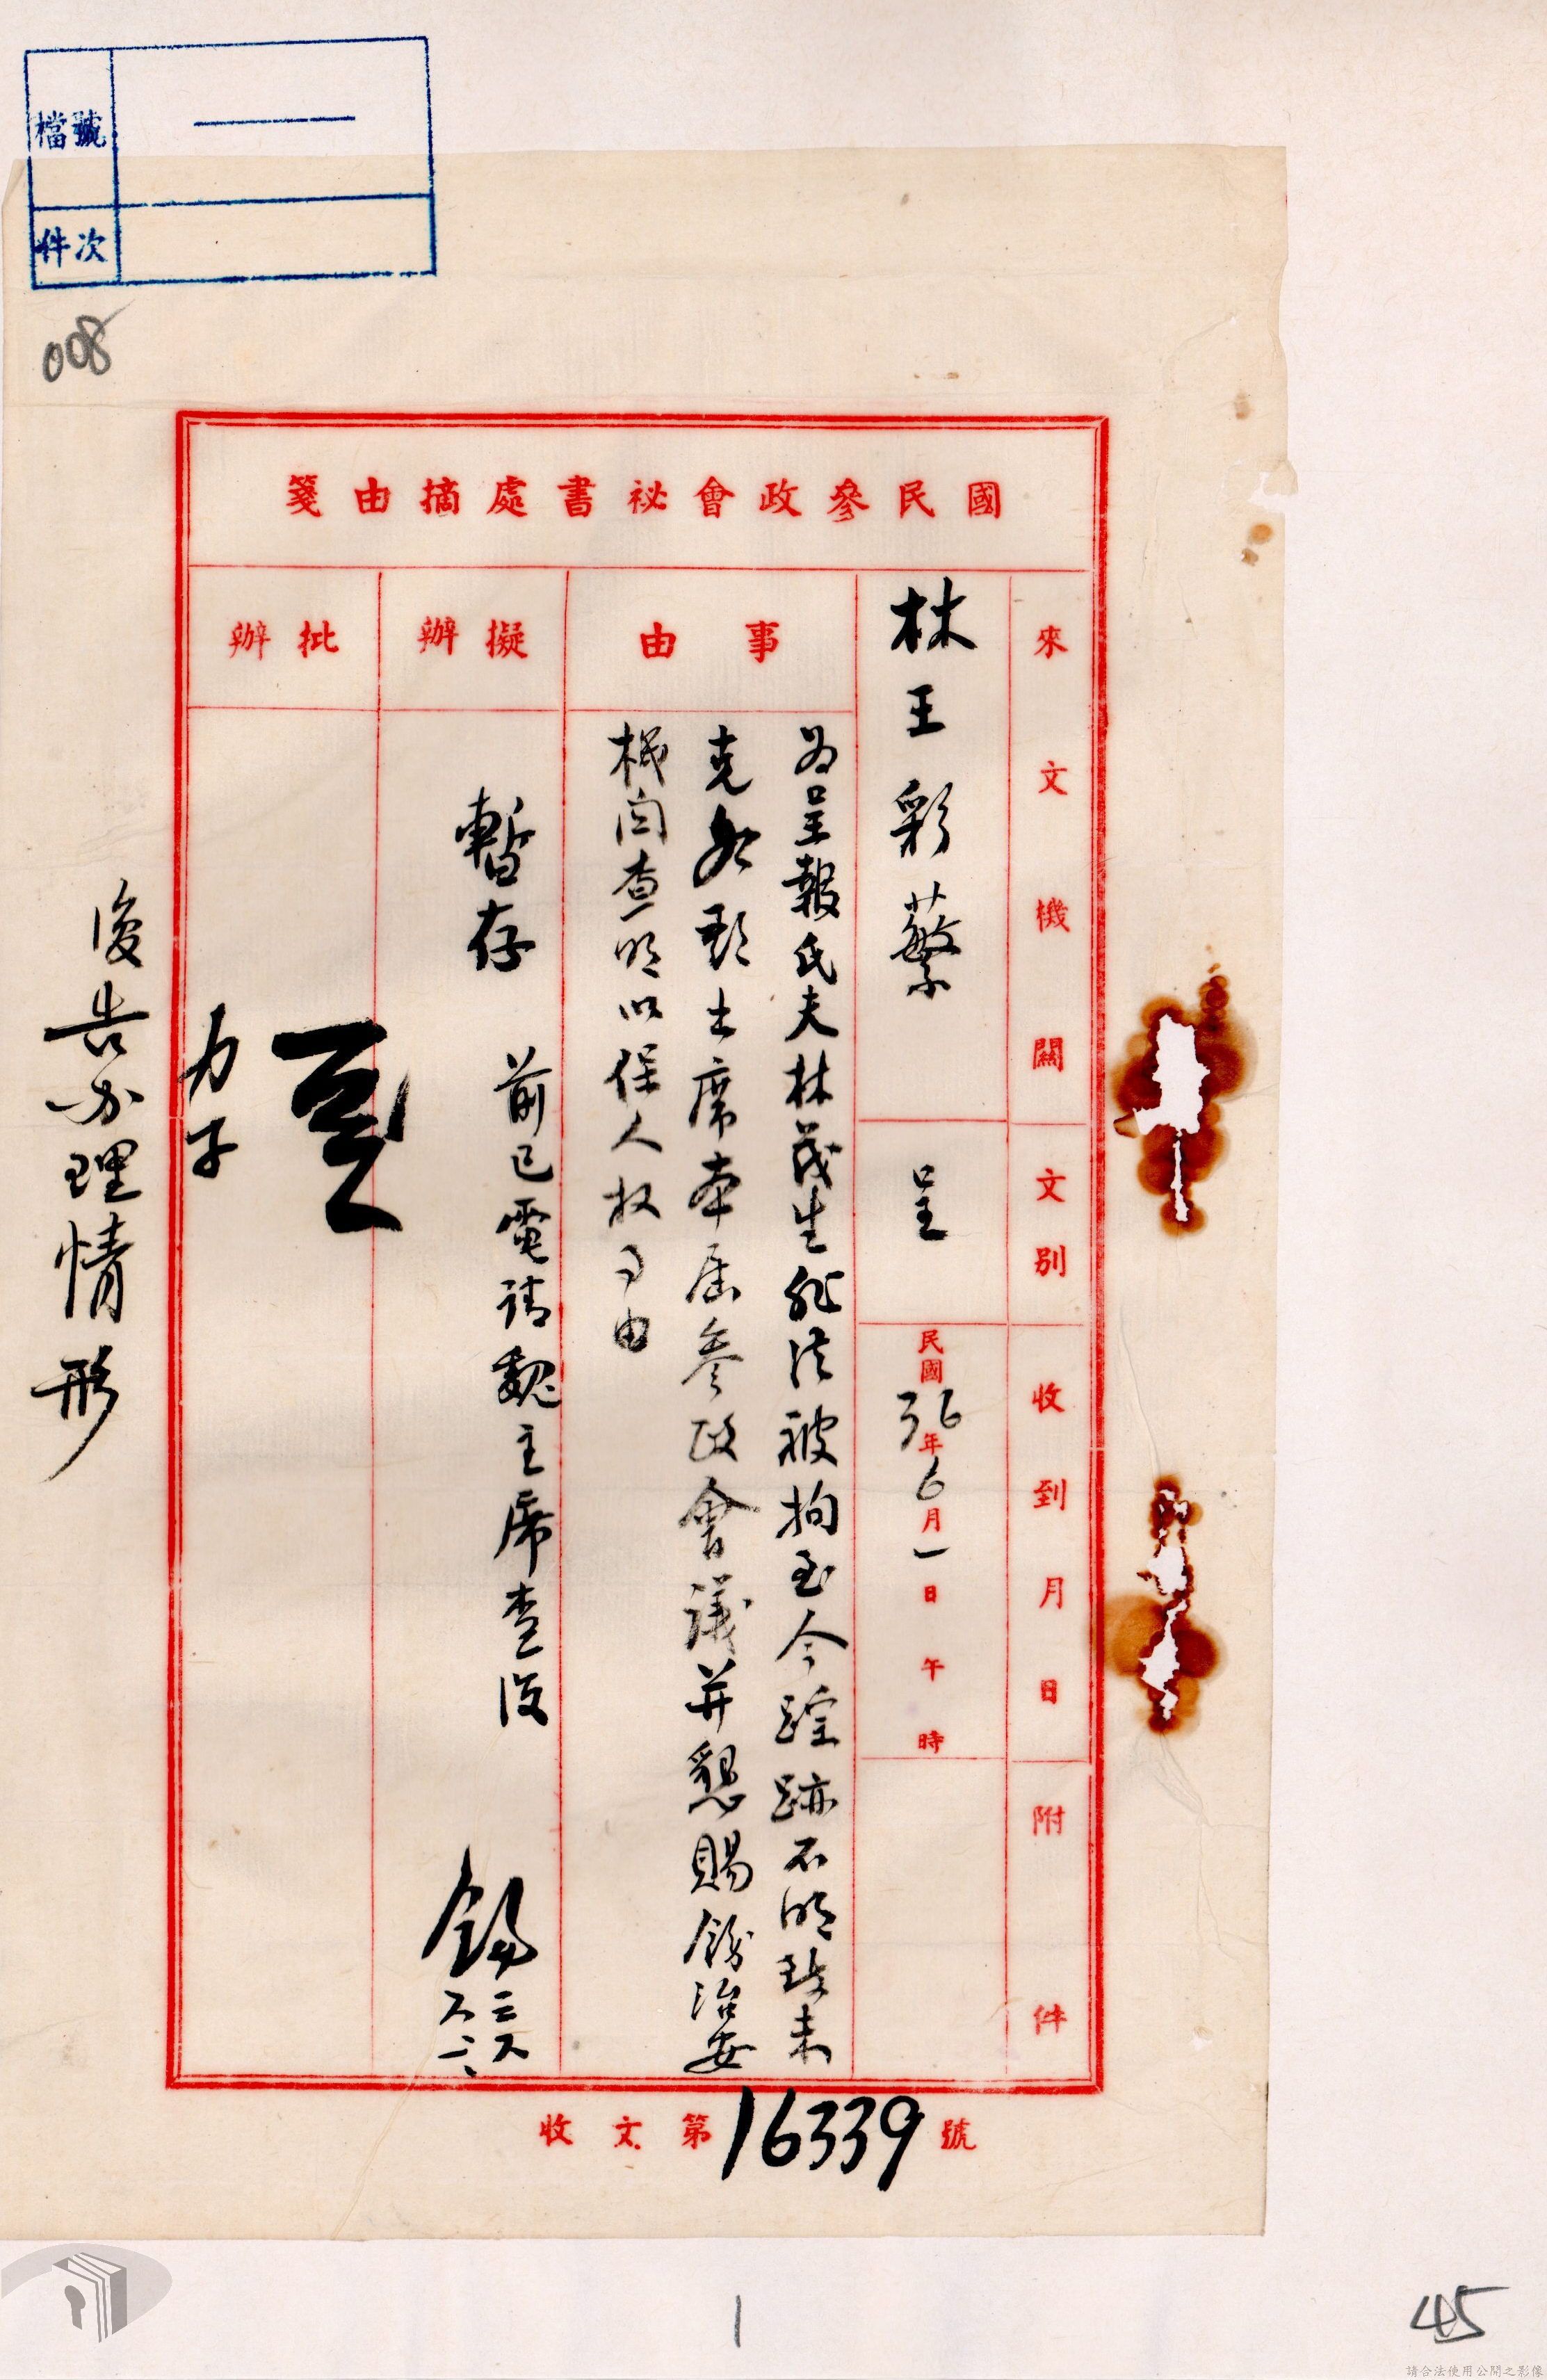 檔號
件次
008
國民參政會祕書處摘由箋
來文機關
林王彩蘩
文別
呈
收到月日
民國36年6月1日午時
附件
事由
為呈報氏夫林茂生非法被拘至今蹤跡不明致未
克如期出席本屆參政會議并懇賜飭治安
機关查明以保人权事由
擬辦
暫存
前已電請魏主席查復
錫
批辦
力子
復告办理情形
收文第16339號
1
45
請合法使用公開之影像